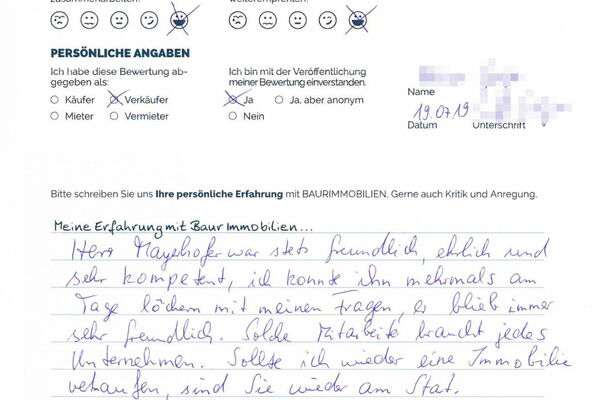 zusammenarbeiten. weiterempfehlen.
PERSÖNLICHE ANGABEN
Ich habe diese Bewertung ab- Ich bin mit der Veröffentlichung
gegeben als: meiner Bewertung einverstanden.
Käufer Verkäufer Ja Ja, aber anonym Name
Mieter Vermieter Nein 19.07.19
Datum Unterschrift
Bitte schreiben Sie uns Ihre persönliche Erfahrung mit BAURIMMOBILIEN. Gerne auch Kritik und Anregung.
Meine Erfahrung mit Baur Immobilien...
Herr Mayerhofer war stets freundlich, ehrlich und
sehr kompetent, ich konnte ihn mehrmals am
Tage löchern mit meinen Fragen, er blieb immer
sehr freundlich. Solche Mitarbeite braucht jedes
Unternehmen. Sollte ich wieder eine Immobilie
verkaufen, sind Sie wieder am Start.